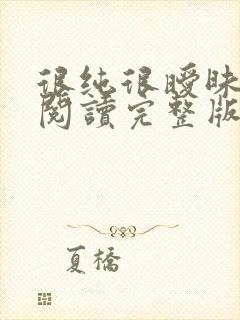 很純很曖昧
閱讀完整版
夏橋